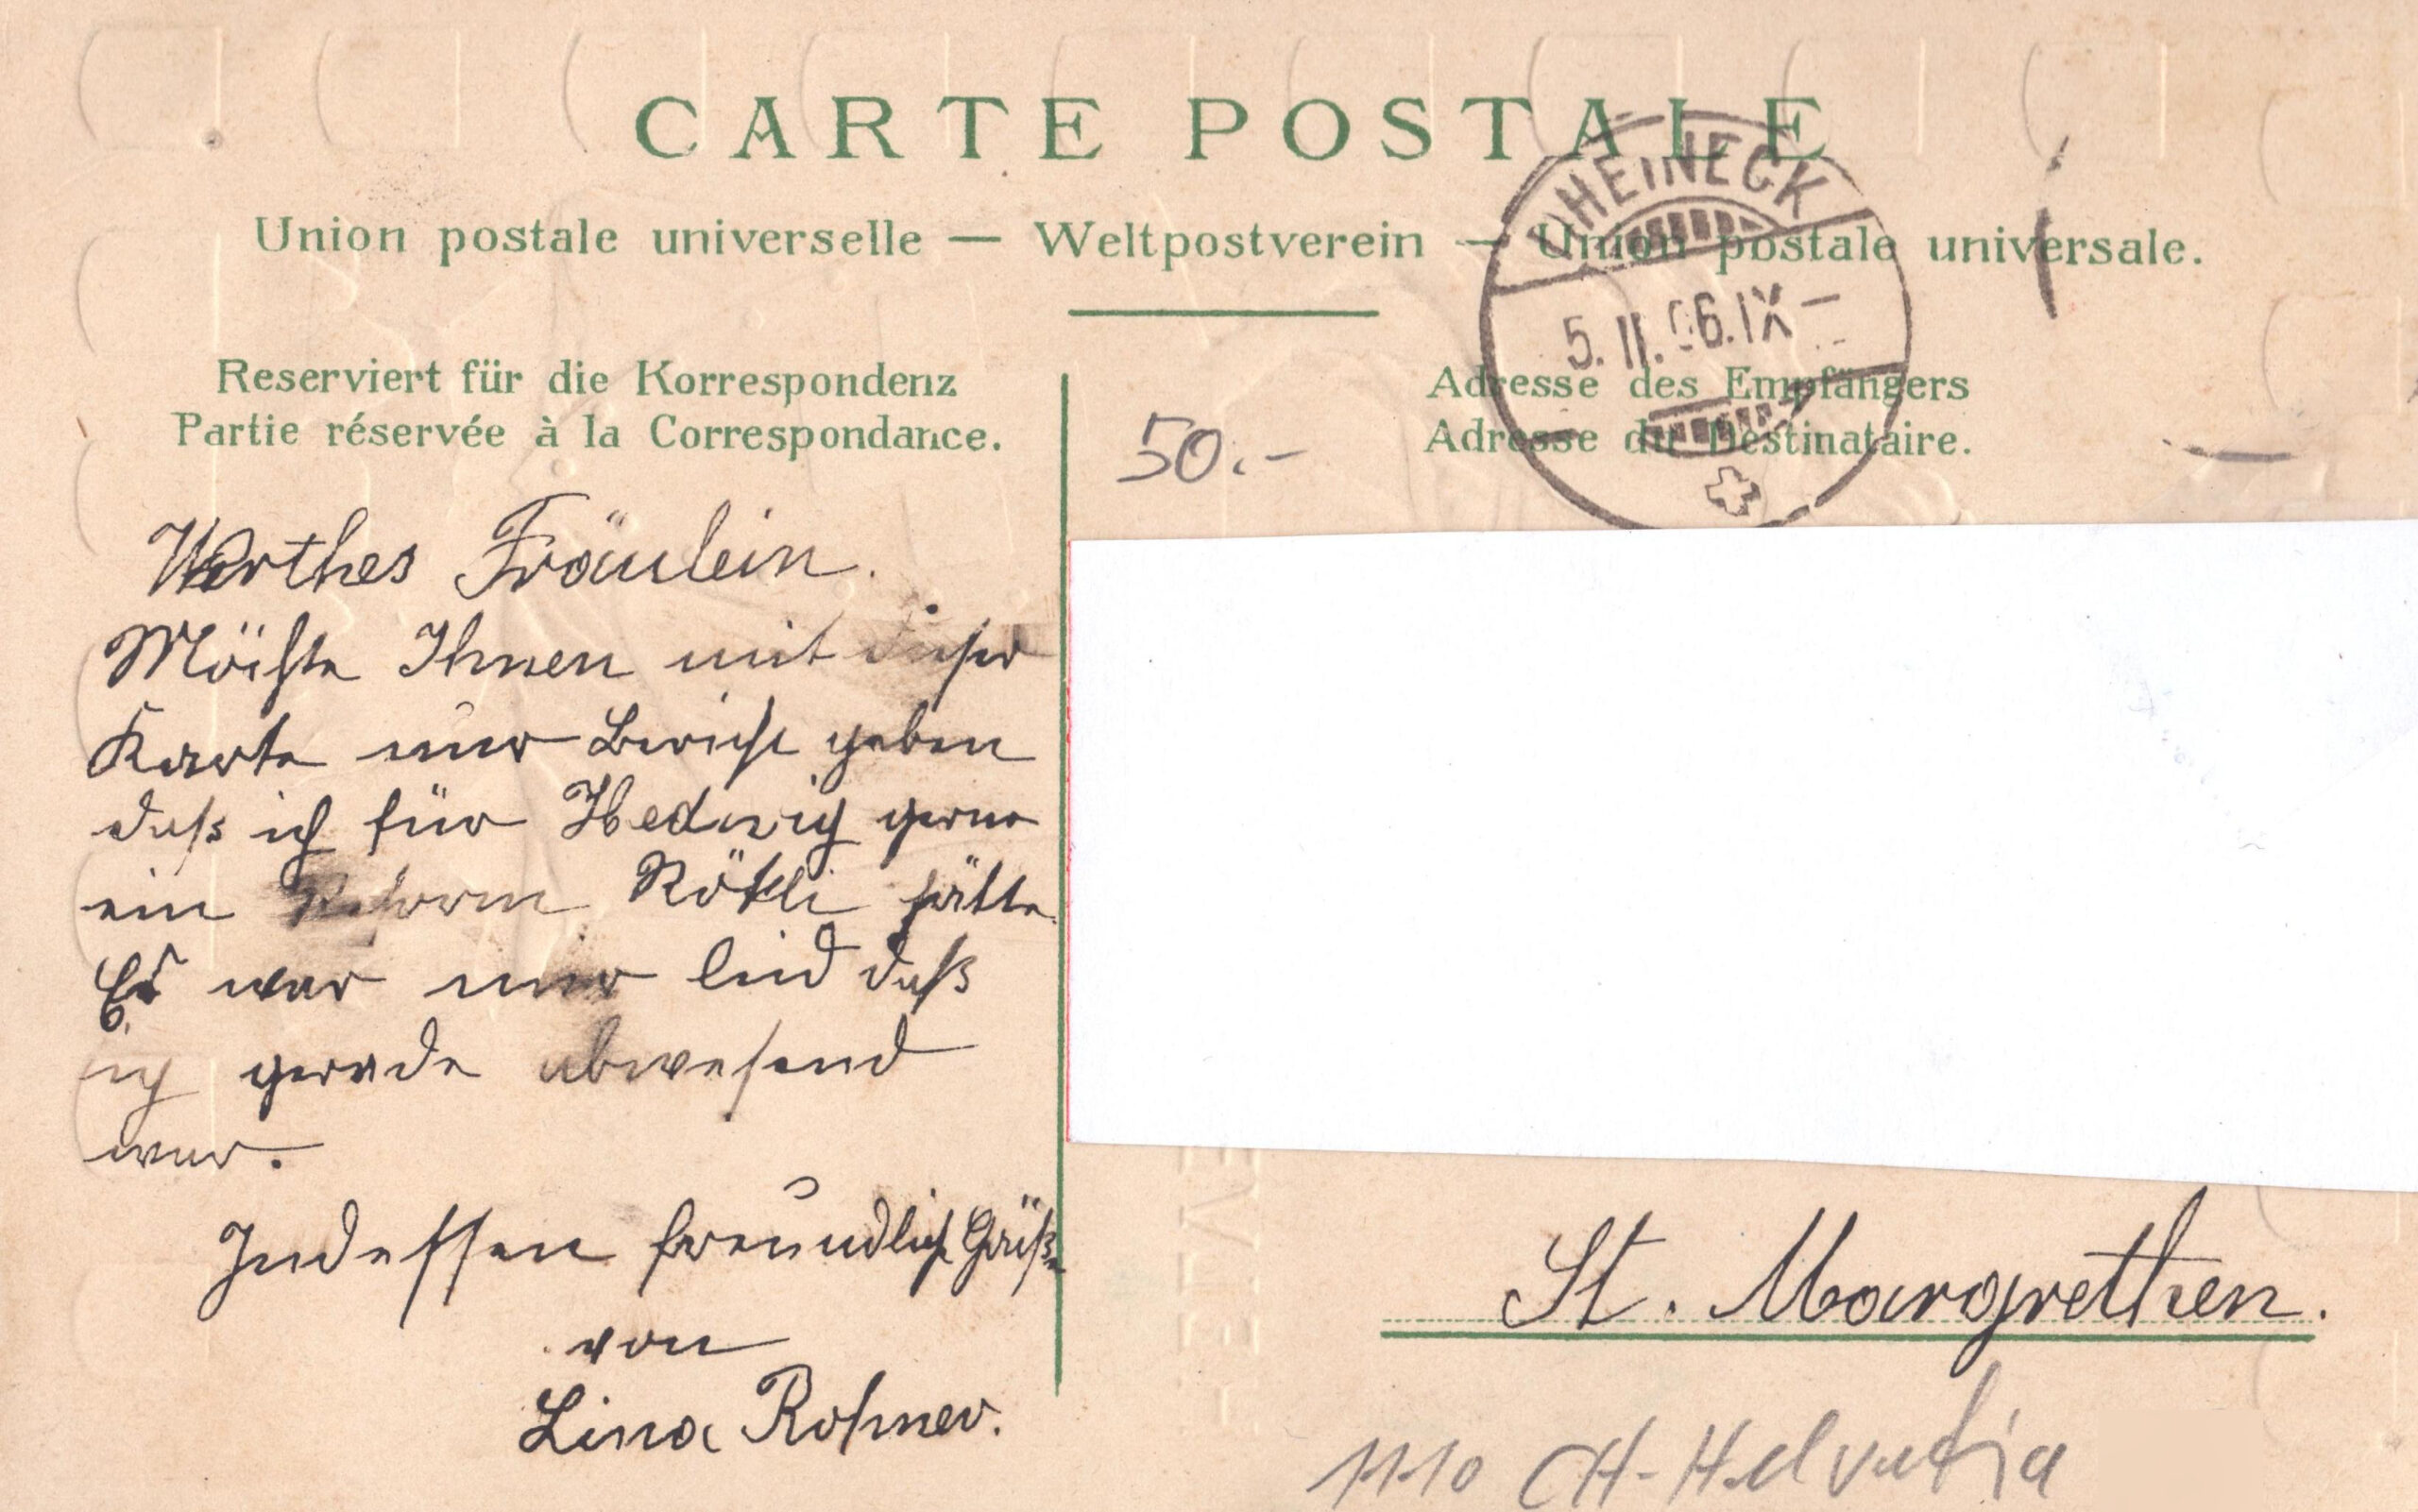 CARTE POSTALE
Union postale universelle — Weltpostverein — Union postale universale.
RHEINECK
5. II. 06. IX –
Reserviert für die Korrespondenz
Partie réservée à la Correspondance.
Adresse des Empfängers
Adresse du Destinataire.
50.-
Werthes Fräulein.
Möchte Ihnen mit dieser
Karte nur Bericht geben
daß ich für Hedwig gerne
ein Reform Rökli hätte.
Es war mir leid daß
ich gerade abwesend
war.
Indessen freundliche Grüße
von
Lina Rohner.
St. Margrethen.
1110 CH-Helvetia